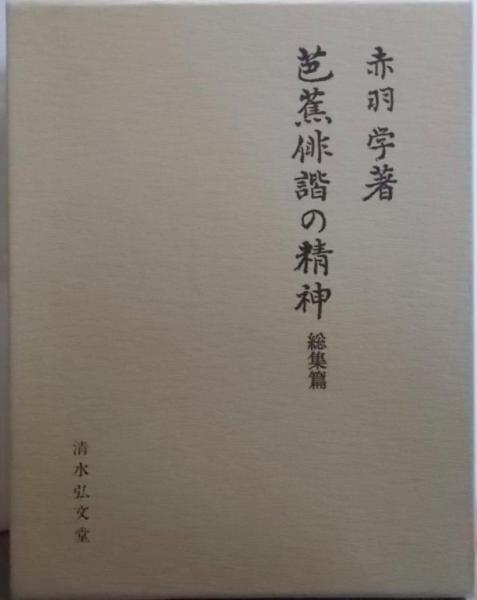 赤羽学著
芭蕉俳諧の精神 総集篇
清水弘文堂